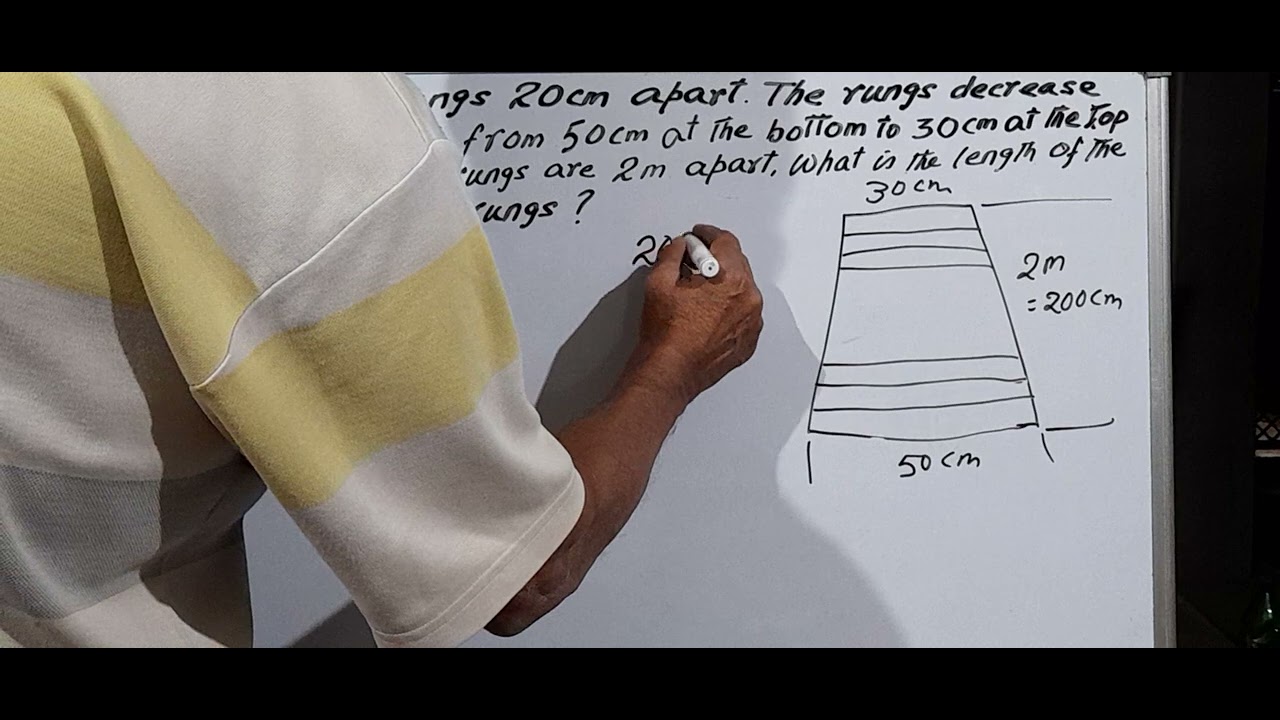 ngs 20cm apart. The rungs decrease
from 50cm at the bottom to 30cm at the Top
rungs are 2m apart, What is the length of the
rungs?
30cm
20
2m
= 200cm
50cm